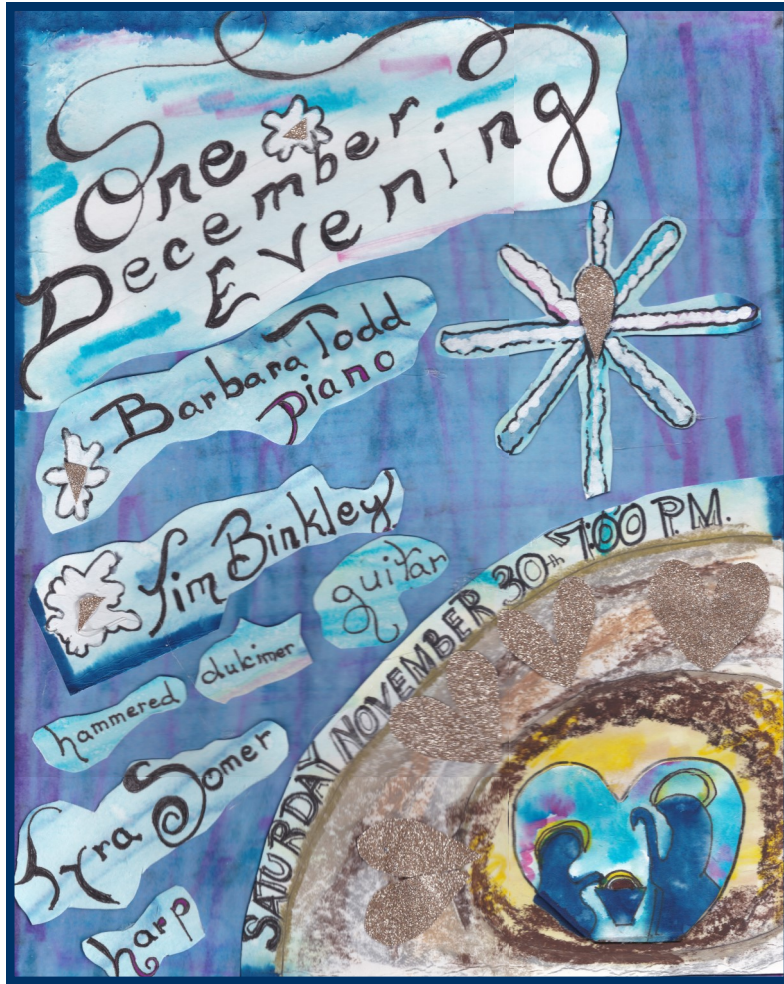 One
December
Evening
Barbara Todd
piano
Jim Binkley
guitar
hammered
dulcimer
Kyra Somer
harp
SATURDAY NOVEMBER 30th 7:00 P.M.